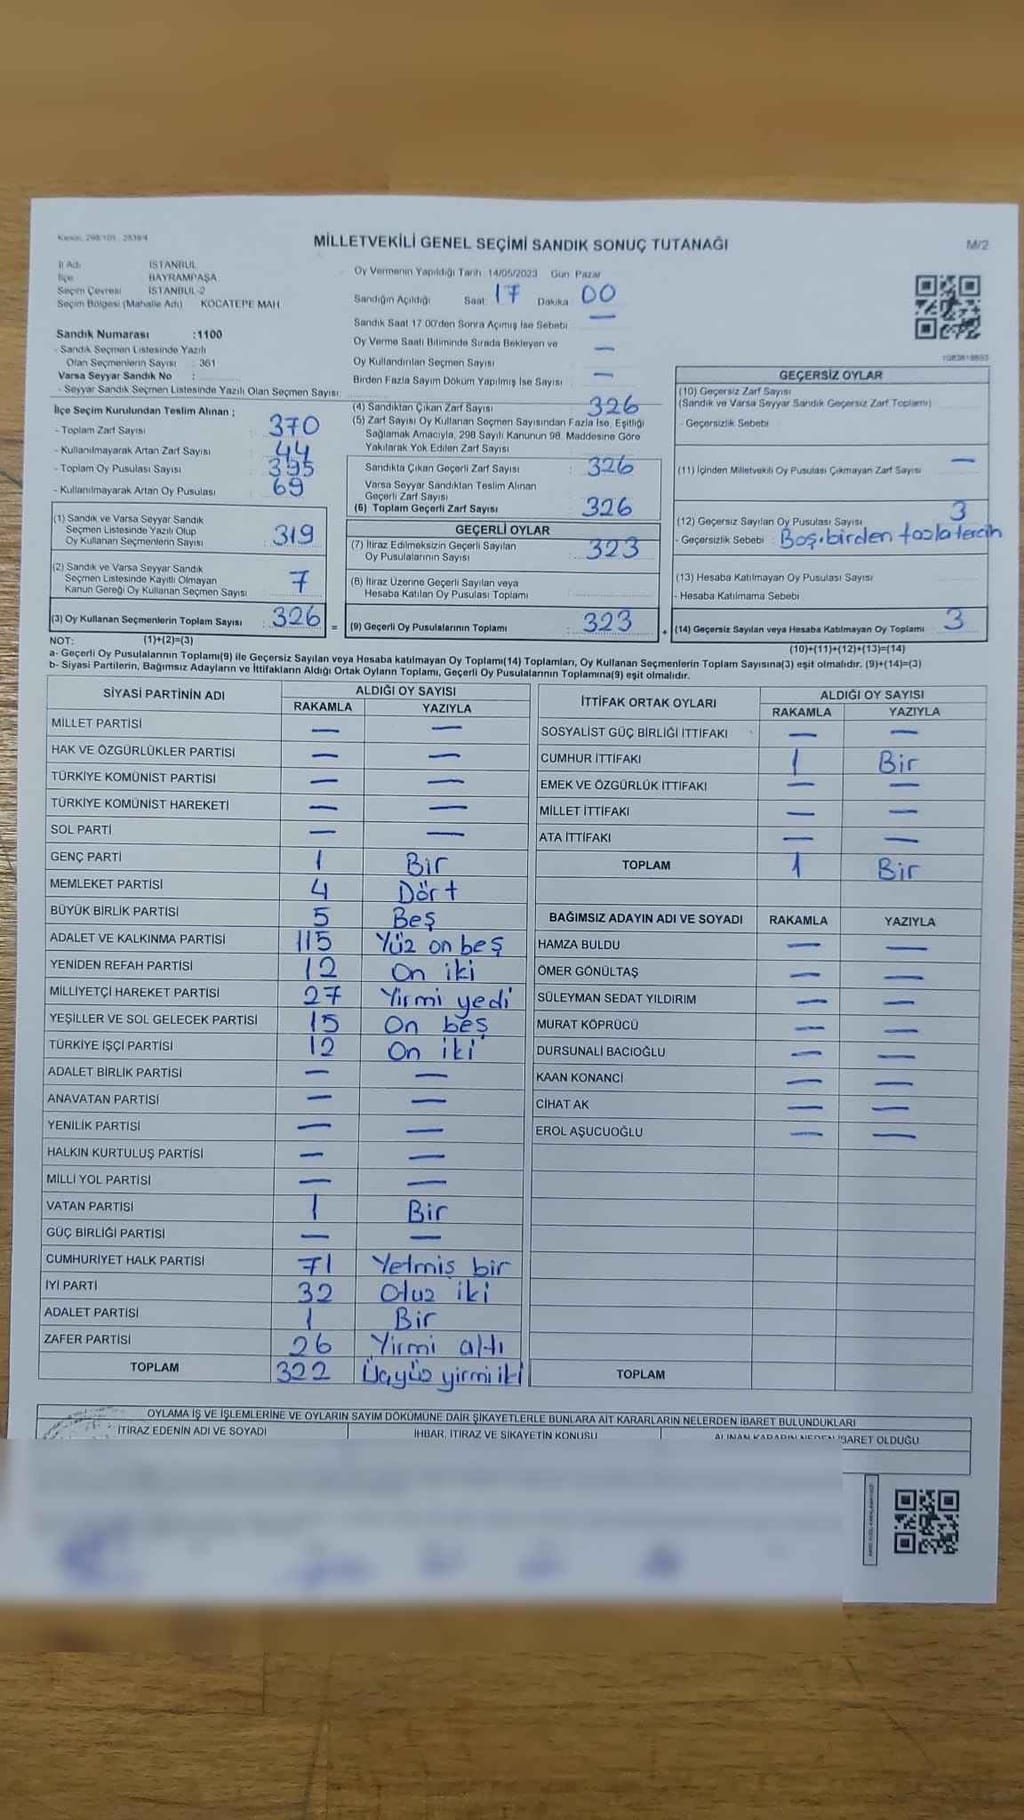 MİLLETVEKİLİ GENEL SEÇİMİ SANDIK SONUÇ TUTANAĞI
M/2
İl Adı İSTANBUL
İlçe BAYRAMPAŞA
Seçim Çevresi İSTANBUL-2
Seçim Bölgesi (Mahalle Adı) KOCATEPE MAH
Sandık Numarası :1100
- Sandık Seçmen Listesinde Yazılı
Olan Seçmenlerin Sayısı : 361
Varsa Seyyar Sandık No :
- Seyyar Sandık Seçmen Listesinde Yazılı Olan Seçmen Sayısı:
Oy Vermenin Yapıldığı Tarih 14/05/2023 Gün Pazar
Sandığın Açıldığı Saat 17 Dakika 00
Sandık Saat 17 00'den Sonra Açımış İse Sebebi —
Oy Verme Saati Bitiminde Sırada Bekleyen ve
Oy Kullandırılan Seçmen Sayısı —
Birden Fazla Sayım Döküm Yapılmış İse Sayısı —
İlçe Seçim Kurulundan Teslim Alınan ;
- Toplam Zarf Sayısı 370
- Kullanılmayarak Artan Zarf Sayısı 44
- Toplam Oy Pusulası Sayısı 395
- Kullanılmayarak Artan Oy Pusulası 69
(1) Sandık ve Varsa Seyyar Sandık
Seçmen Listesinde Yazılı Olup
Oy Kullanan Seçmenlerin Sayısı : 319
(2) Sandık ve Varsa Seyyar Sandık
Seçmen Listesinde Kayıtlı Olmayan
Kanun Gereği Oy Kullanan Seçmen Sayısı 7
(3) Oy Kullanan Seçmenlerin Toplam Sayısı : 326 =
(4) Sandıktan Çıkan Zarf Sayısı : 326
(5) Zarf Sayısı Oy Kullanan Seçmen Sayısından Fazla İse, Eşitliği
Sağlamak Amacıyla, 298 Sayılı Kanunun 98. Maddesine Göre
Yakılarak Yok Edilen Zarf Sayısı
Sandıkta Çıkan Geçerli Zarf Sayısı : 326
Varsa Seyyar Sandıktan Teslim Alınan
Geçerli Zarf Sayısı
(6) Toplam Geçerli Zarf Sayısı : 326
GEÇERLİ OYLAR
(7) İtiraz Edilmeksizin Geçerli Sayılan
Oy Pusulalarının Sayısı : 323
(8) İtiraz Üzerine Geçerli Sayılan veya
Hesaba Katılan Oy Pusulası Toplamı
(9) Geçerli Oy Pusulalarının Toplamı : 323 +
GEÇERSİZ OYLAR
(10) Geçersiz Zarf Sayısı
(Sandık ve Varsa Seyyar Sandık Geçersiz Zarf Toplamı)
- Geçersizlik Sebebi
(11) İçinden Milletvekili Oy Pusulası Çıkmayan Zarf Sayısı —
(12) Geçersiz Sayılan Oy Pusulası Sayısı 3
- Geçersizlik Sebebi : Boş.birden fazla tercih
(13) Hesaba Katılmayan Oy Pusulası Sayısı
- Hesaba Katılmama Sebebi
(14) Geçersiz Sayılan veya Hesaba Katılmayan Oy Toplamı 3
NOT: (1)+(2)=(3) (10)+(11)+(12)+(13)=(14)
a- Geçerli Oy Pusulalarının Toplamı(9) ile Geçersiz Sayılan veya Hesaba katılmayan Oy Toplamı(14) Toplamları, Oy Kullanan Seçmenlerin Toplam Sayısına(3) eşit olmalıdır. (9)+(14)=(3)
b- Siyasi Partilerin, Bağımsız Adayların ve İttifakların Aldığı Ortak Oyların Toplamı, Geçerli Oy Pusulalarının Toplamına(9) eşit olmalıdır.
SİYASİ PARTİNİN ADI ALDIĞI OY SAYISI
RAKAMLA YAZIYLA
MİLLET PARTİSİ — —
HAK VE ÖZGÜRLÜKLER PARTİSİ — —
TÜRKİYE KOMÜNİST PARTİSİ — —
TÜRKİYE KOMÜNİST HAREKETİ — —
SOL PARTİ — —
GENÇ PARTİ 1 Bir
MEMLEKET PARTİSİ 4 Dört
BÜYÜK BİRLİK PARTİSİ 5 Beş
ADALET VE KALKINMA PARTİSİ 115 Yüz on beş
YENİDEN REFAH PARTİSİ 12 On iki
MİLLİYETÇİ HAREKET PARTİSİ 27 Yirmi yedi
YEŞİLLER VE SOL GELECEK PARTİSİ 15 On beş
TÜRKİYE İŞÇİ PARTİSİ 12 On iki
ADALET BİRLİK PARTİSİ — —
ANAVATAN PARTİSİ — —
YENİLİK PARTİSİ — —
HALKIN KURTULUŞ PARTİSİ — —
MİLLİ YOL PARTİSİ — —
VATAN PARTİSİ 1 Bir
GÜÇ BİRLİĞİ PARTİSİ — —
CUMHURİYET HALK PARTİSİ 71 Yetmiş bir
İYİ PARTİ 32 Otuz iki
ADALET PARTİSİ 1 Bir
ZAFER PARTİSİ 26 Yirmi altı
TOPLAM 322 Üçyüz yirmi iki
İTTİFAK ORTAK OYLARI ALDIĞI OY SAYISI
RAKAMLA YAZIYLA
SOSYALİST GÜÇ BİRLİĞİ İTTİFAKI — —
CUMHUR İTTİFAKI 1 Bir
EMEK VE ÖZGÜRLÜK İTTİFAKI — —
MİLLET İTTİFAKI — —
ATA İTTİFAKI — —
TOPLAM 1 Bir
BAĞIMSIZ ADAYIN ADI VE SOYADI RAKAMLA YAZIYLA
HAMZA BULDU — —
ÖMER GÖNÜLTAŞ — —
SÜLEYMAN SEDAT YILDIRIM — —
MURAT KÖPRÜCÜ — —
DURSUNALİ BACIOĞLU — —
KAAN KONANCİ — —
CİHAT AK — —
EROL AŞUCUOĞLU — —
TOPLAM
OYLAMA İŞ VE İŞLEMLERİNE VE OYLARIN SAYIM DÖKÜMÜNE DAİR ŞİKAYETLERLE BUNLARA AİT KARARLARIN NELERDEN İBARET BULUNDUKLARI
İTİRAZ EDENİN ADI VE SOYADI İHBAR, İTİRAZ VE ŞİKAYETİN KONUSU ALINAN KARARIN NEDEN İBARET OLDUĞU